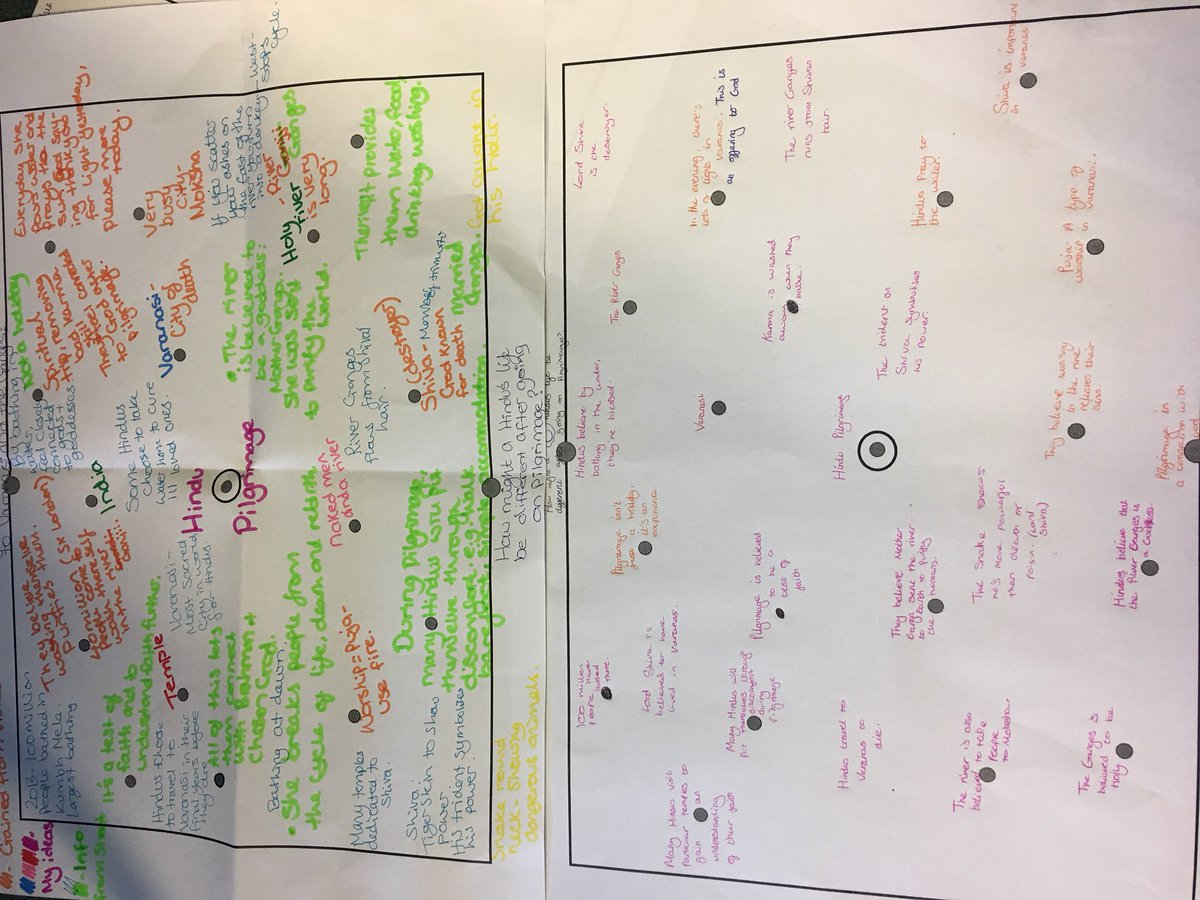 to Varanasi and the Ganges.
by bathing in
water,
feel closely
connected
to gods +
goddesses
Not a holiday
Spiritual
trip, removing
bad karma.
Themself closer
to God
pilgrimage.
Everyday she
pours water and
prays to the
sun god say
ing thank you
for light yesterday,
please more
today.
They believe
washing themselve
purifies them.
(5x London)
40 million
people come to
water
in the river
India
Some Hindus
choose to take
water home to cure
ill loved ones.
Varanasi -
City of
death
Very
busy
City-
Moksha
2013 - 100 million
people bathed in
Kumbh Mela.
Largest bathing
It's a test of
faith and to
understand faith further.
Hindus choose
to travel to
Varanasi in their
final years before
they die
Temple
Varanasi -
Most Sacred
City in world
for Hindus
All of this lets
them connect
with Brahman +
Chosen God.
Hindu
Pilgrimage
• The river
is believed to
be a goddess:
Mother Ganga.
She was sent
to purify the world.
If you scatter
your ashes on
the East of the
river you turn
into a donkey - West -
stops
cycle.
Holy River
- River
Ganges
is very
long.
Bathing at dawn.
• She breaks people from
the cycle of life, death and rebirth
naked men
and a river
River Ganges
flows from Shiva
hair
The river provides
them water, food,
drinking, washing.
Many temples
dedicated to
Shiva.
Worship = puja -
use fire.
(destroyer)
Shiva - Member of trimurti
God known
for death
Married
Ganga.
Got caught in
his hair.
Shiva
Tiger skin to show
power
His trident symbolises
his power.
During pilgrimage
many Hindus will put
themselve through
discomfort e.g. walk
bare foot, simple accommodation.
Snake round
neck - showing
dangerous animals.
How might a Hindus life
be different after going
on pilgrimage?
My ideas
- Info
from Sheet
Lord Shiva
is the
destroyer.
In the evening, there's
lots of lights in
Varanasi. This is
an offering to God
The river Ganges
runs from Shivas
hair.
Shiva is important
in Varanasi
The River Ganges
Karma is washed
away when they
bathe.
Hindus pray to
the water.
Puja - A type of
worship in
Varanasi.
Hindus believe by
bathing in the water,
they're blessed.
Varanasi
The trident on
Shiva symbolises
his power.
They believe washing
in the river
releases their
sins.
Hindu Pilgrimage
Pilgrimage is
a connection with
Pilgrimage isn't
just a holiday,
it's an
experience
Pilgrimage is believed
to be a
test of
faith
They believe Mother
Ganga came the river
to Earth to purify
the humans.
The Snake shows
he's more powerful
than death or
poison. (Lord
Shiva)
Hindus believe that
the River Ganges is
a Goddess.
100 million
people have
bathed
there.
Lord Shiva is
believed to have
lived in Varanasi.
Many Hindus will
put themselves through
discomfort
during
pilgrimage
Hindus travel to
Varanasi to
die.
The river is also
believed to take
people to Moksha
The Ganges is
believed to be
Holy.
Many Hindus visit
particular temples to
gain an
understanding
of their faith